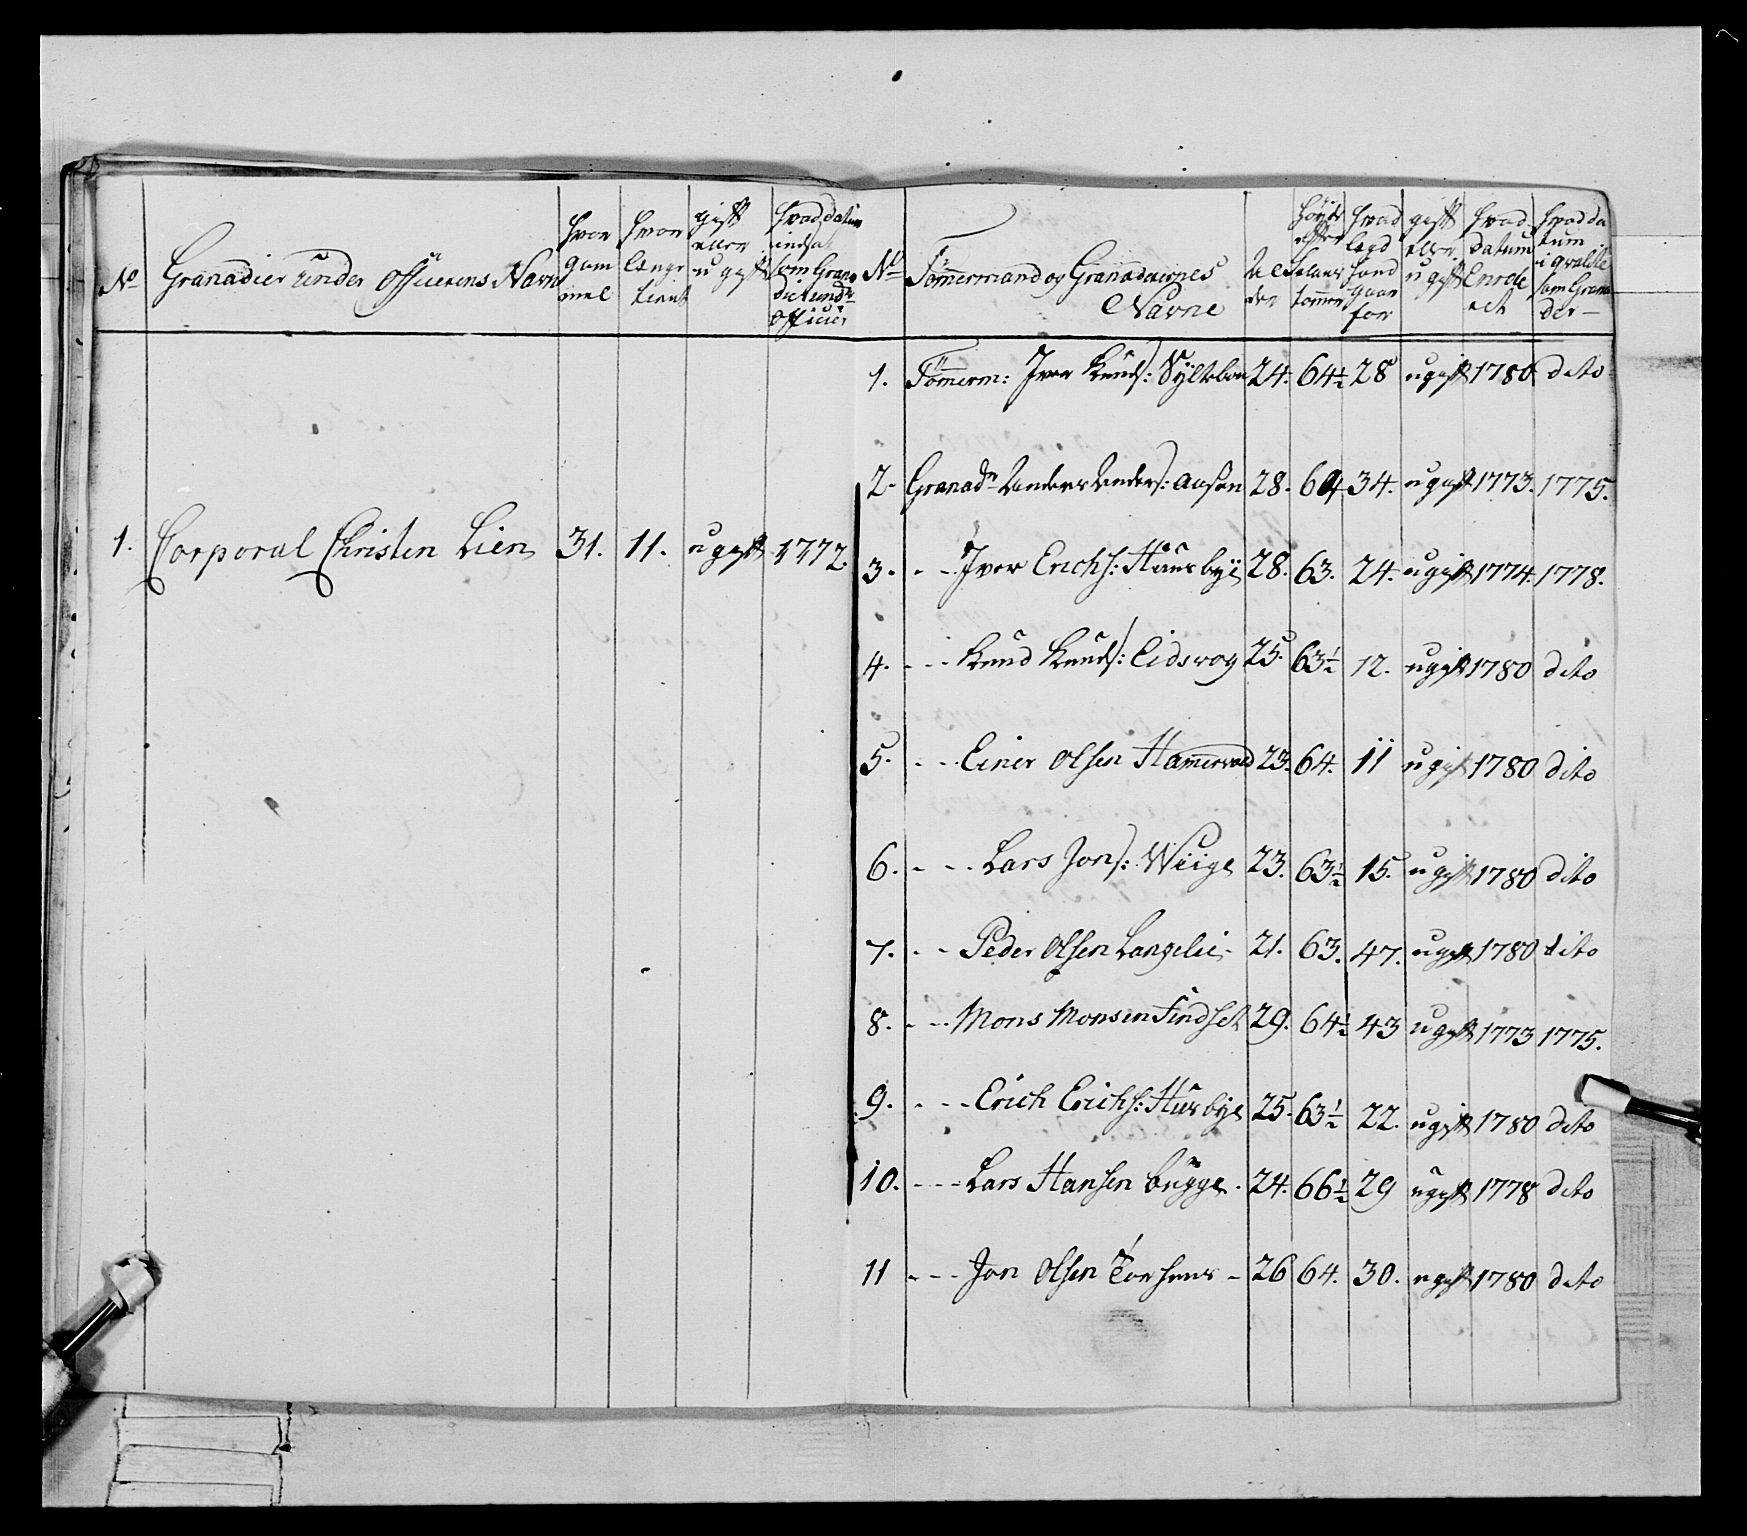 No Granadier under Officerens Navn
hvor gam mel
hvor lenge tient
gift eller ugift
hvad datum indsat som Grana dier undr Officier
1. Corporal Christen Lien 31. 11. ugift 1772.
No Tömermand og Granadeernes Navne
Al dre
höyde efter tommer
hvad legd hand gaar for
gift eller ugift
hvad datum Enrolle ret
hvad da tum i qvalite som Grana der
1. Tömerm: Iver Knuds: Syltebön 24. 64½ 28 ugift 1780. dito
2. Granadr Anders Anders: Aasen 28. 64 34. ugift 1773. 1775.
3. - - Iver Erichs: Huusbÿe 28. 63. 24. ugift 1774. 1778.
4. - - - Knud Knuds: Eidsvog 25. 63½ 12. ugift 1780 dito
5. - - - Einer Olsen Hamervold 23. 64. 11 ugift 1780 dito
6. - - - Lars Jons: Wiige 23. 63½ 15. ugift 1780 dito
7. - - Peder Olsen Langelie - 21. 63. 47. ugift 1780 dito
8. - - - Mons Monsen Findset 29. 64½ 43 ugift 1773 1775.
9. - - - Erich Erichs: Husbÿe 25. 63½ 22. ugift 1780 dito
10. - - - Lars Hansen bugge. 24. 66½ 29 ugift 1778 dito
11 - - - Jon Olsen - 26 64. 30. ugift 1780 dito